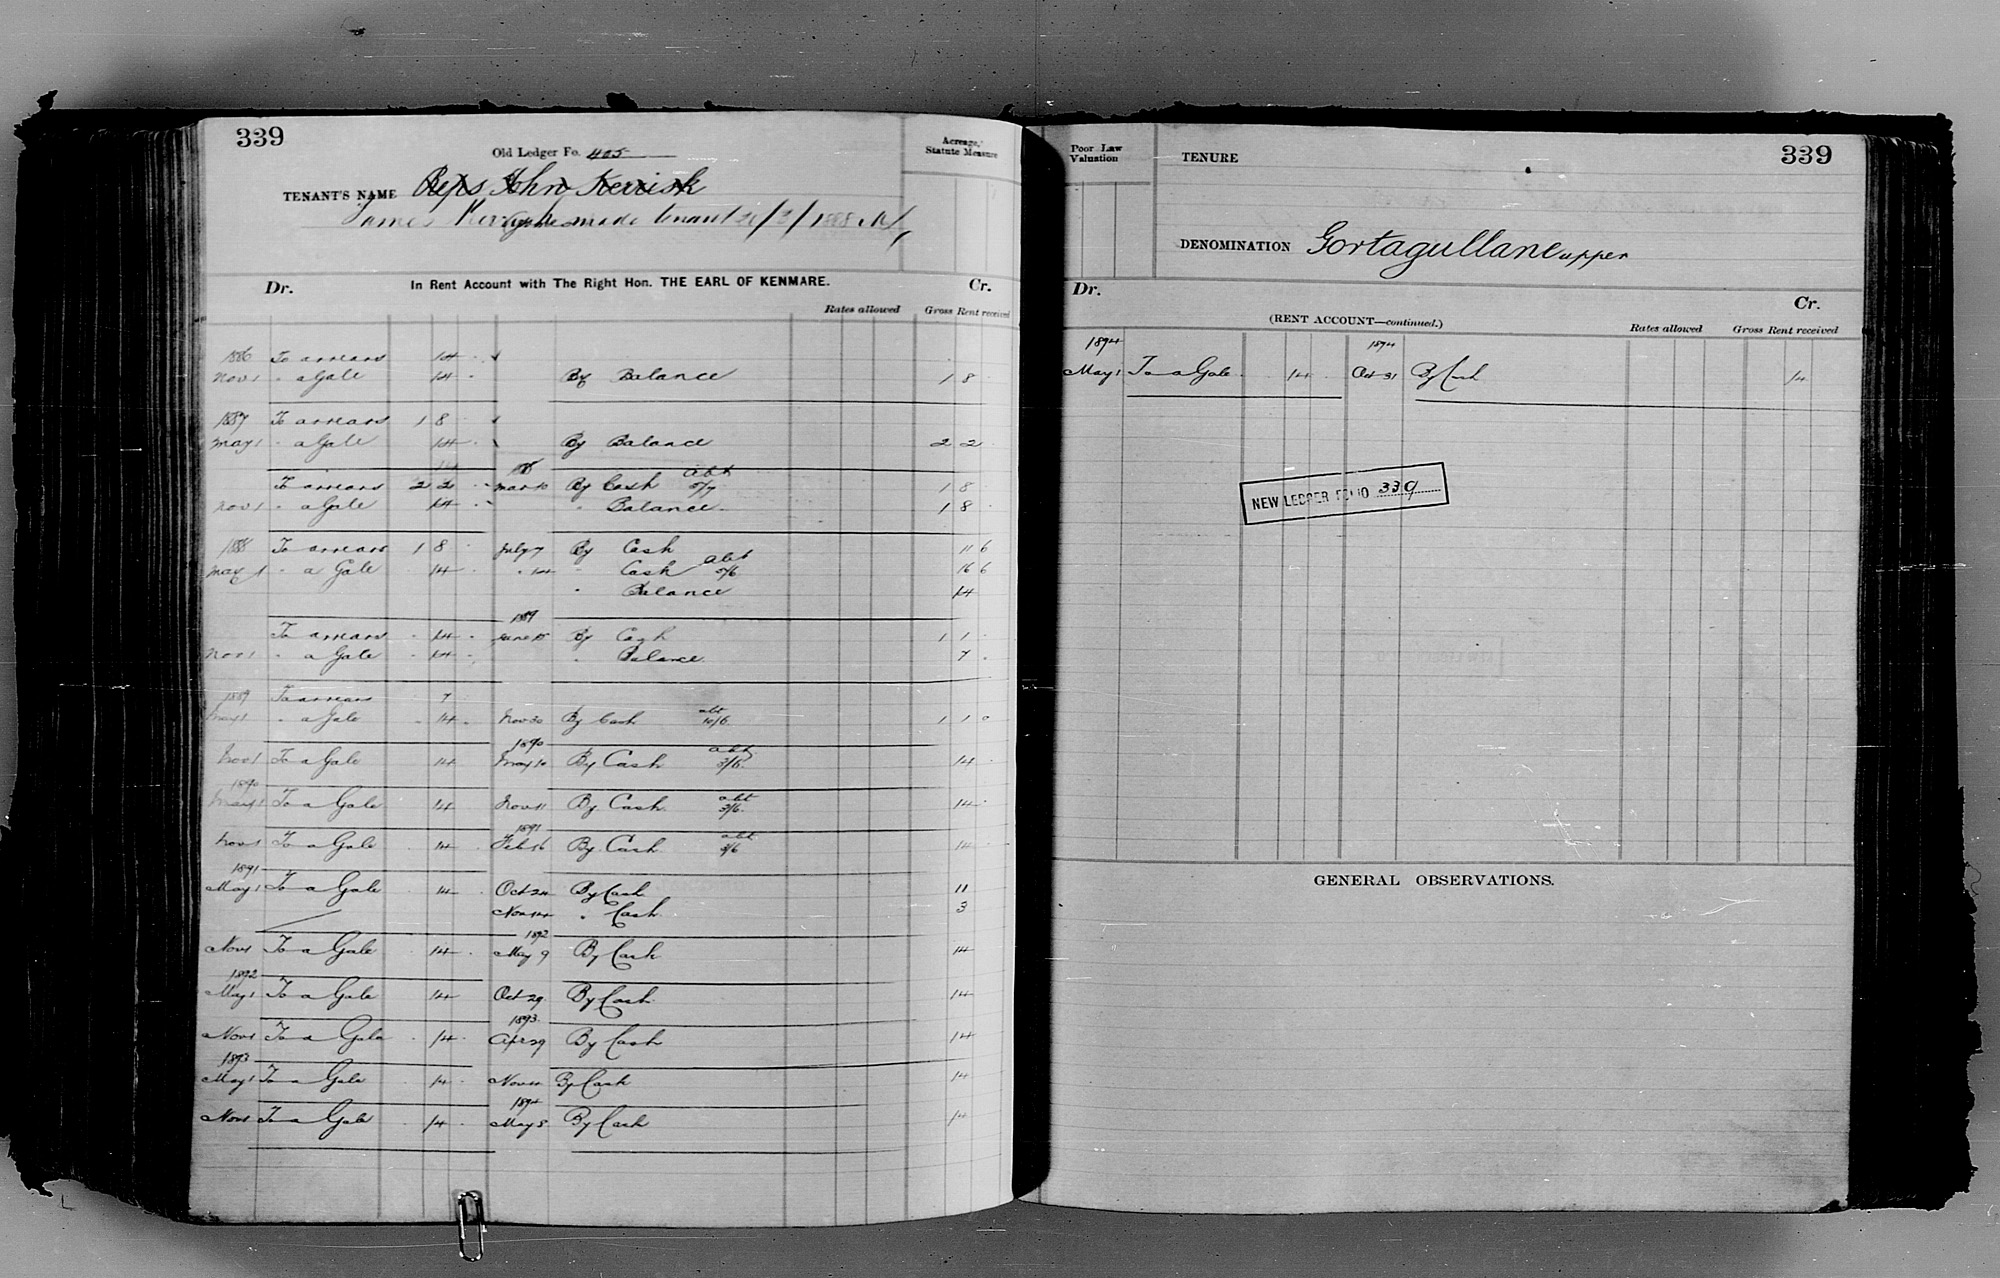 339
Old Ledger Fo. 405
Acreage, Statute Measure
TENANT'S NAME Reps John Kerrisk
James made tenant
Dr. In Rent Account with The Right Hon. THE EARL OF KENMARE. Cr.
Rates allowed Gross Rent received
1886 To arrears 14
Nov 1 " a Gale 14 By Balance 1 8
1887 To arrears 1 8
May 1 " a Gale 14 By Balance 2 2
To arrears 2 2 Mar 10 By Cash abt 1 8
Nov 1 " a Gale 14 " Balance 1 8
1888 To arrears 1 8 July 7 By Cash 11 6
May 1 " a Gale 14 " 14 " Cash abt 16 6
" Balance 14
1889
To arrears 14 June 15 By Cash 1 1
Nov 1 " a Gale 14 " Balance 7
1889 To arrears 7
May 1 " a Gale 14 Nov 30 By Cash abt 10/6 1 1 0
1890
Nov 1 To a Gale 14 May 10 By Cash abt 3/6 14
1890
May 1 To a Gale 14 Nov 11 By Cash abt 3/6 14
1891
Nov 1 To a Gale 14 Feb 16 By Cash abt 3/6 14
1891
May 1 To a Gale 14 Oct 24 By Cash 11
Nov 14 " Cash 3
1892
Nov 1 To a Gale 14 May 9 By Cash 14
1892
May 1 To a Gale 14 Oct 29 By Cash 14
1893
Nov 1 To a Gale 14 Apr 29 By Cash 14
1893
May 1 To a Gale 14 Nov 11 By Cash 14
1894
Nov 1 To a Gale 14 May 8 By Cash 14
Poor Law Valuation
TENURE
339
DENOMINATION Gortagullane upper
Dr. Cr.
(RENT ACCOUNT—continued.)
Rates allowed Gross Rent received
1894 1894
May 1 To a Gale 14 Oct 31 By Cash 14
NEW LEDGER FOLIO 339
GENERAL OBSERVATIONS.